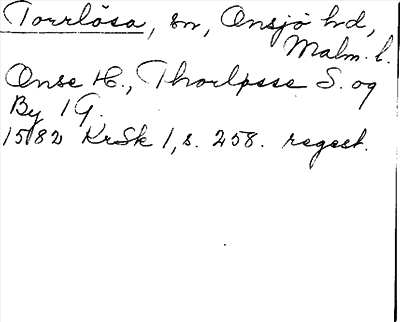 Torrlösa, sn, Onsjö hd,
Malm. l.
Onse H., Thorlpsse S. og
By 1 G.
1582 KrSk 1, s. 258. regest.